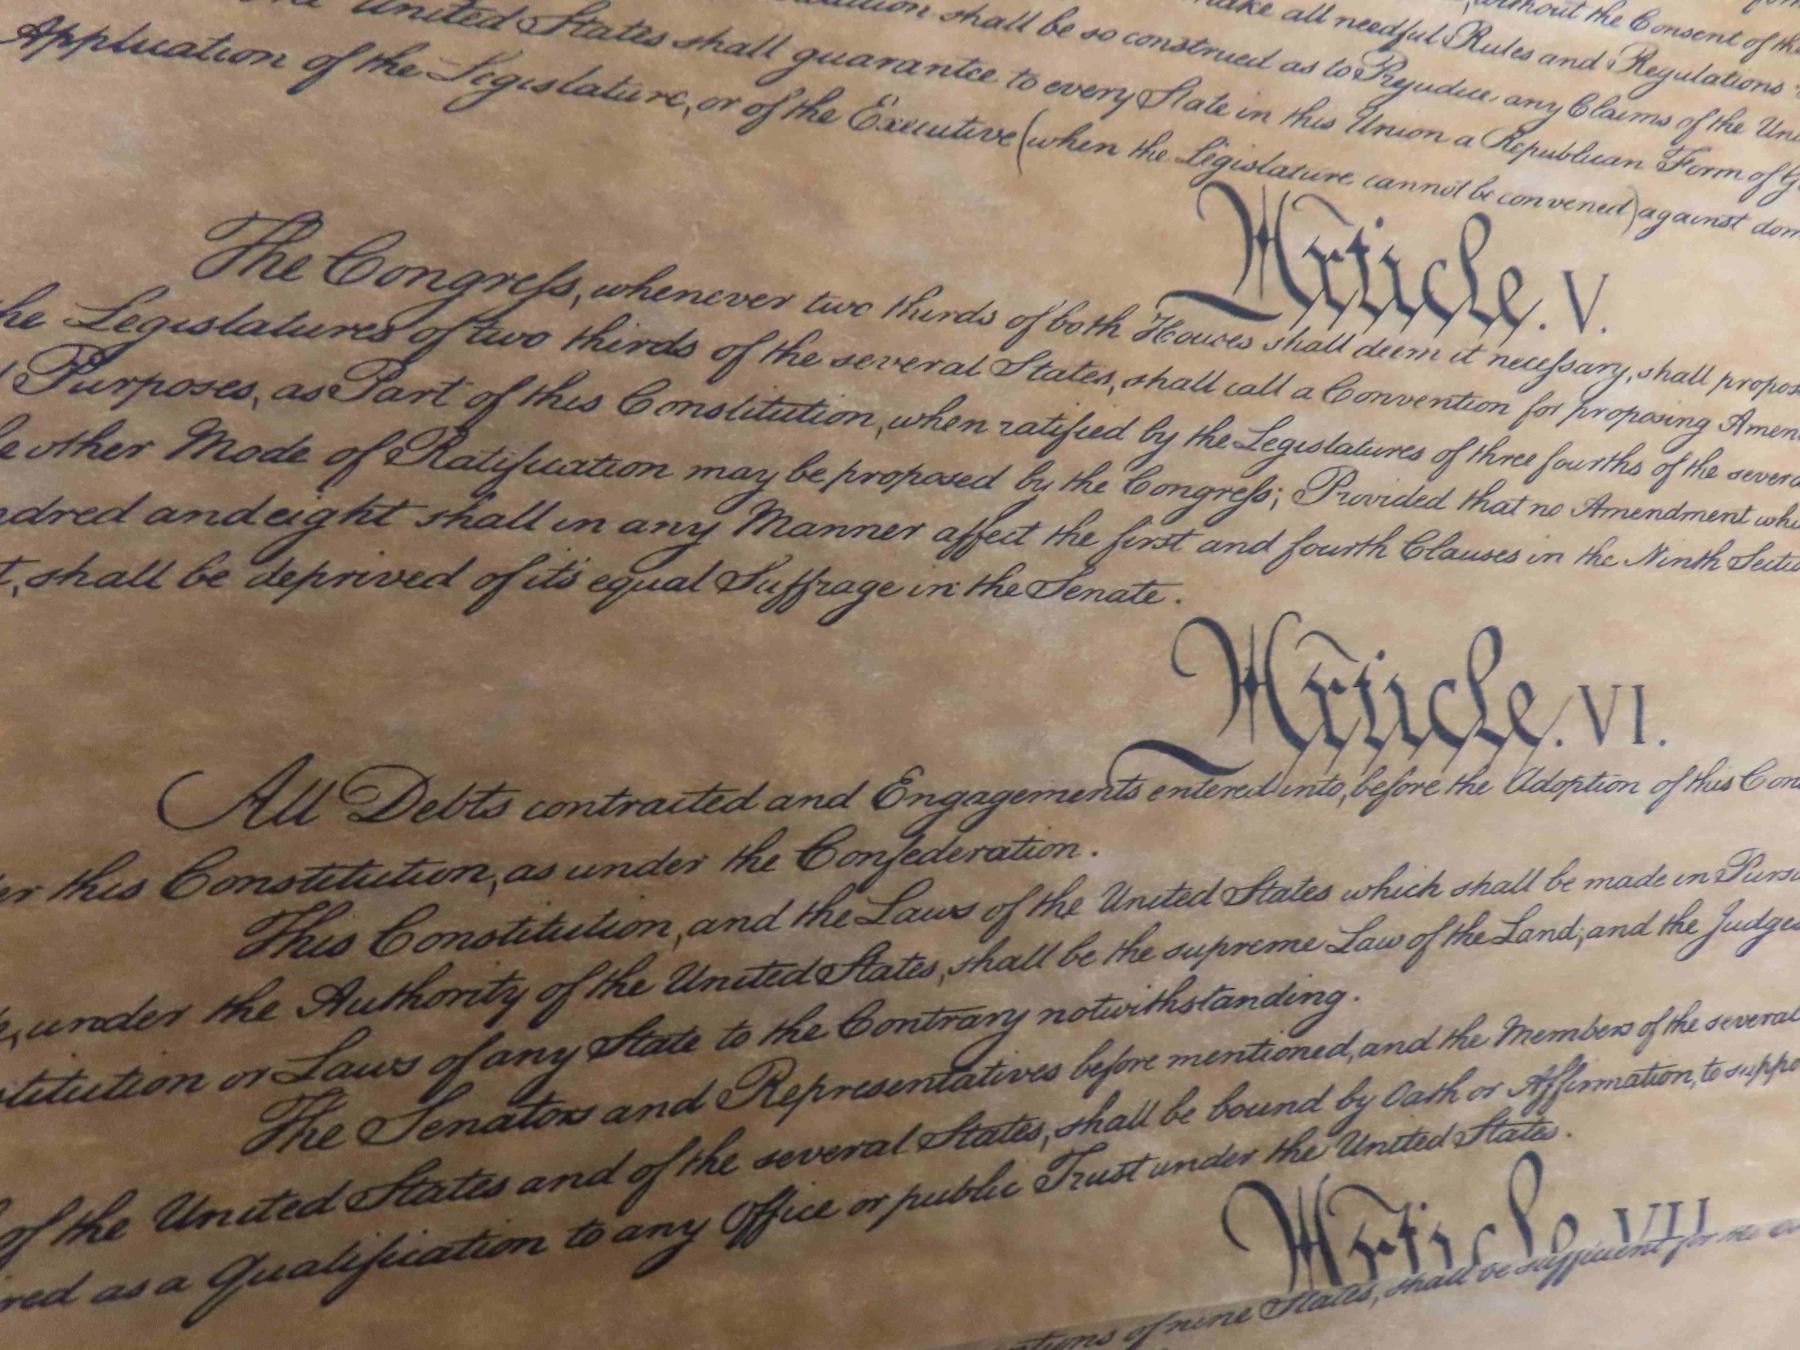 United States shall be so construed as to Prejudice any Claims of the
without the Consent of the
make all needful Rules and Regulations
United States shall guarantee to every State in this Union a Republican Form of
Application of the Legislature, or of the Executive (when the Legislature cannot be convened) against
Article. V.
The Congress, whenever two thirds of both Houses shall deem it necessary, shall
Legislatures of two thirds of the several States, shall call a Convention for proposing
Purposes, as Part of this Constitution, when ratified by the Legislatures of three fourths of the
other Mode of Ratification may be proposed by the Congress; Provided that no Amendment
and eight shall in any Manner affect the first and fourth Clauses in the Ninth
shall be deprived of it's equal Suffrage in the Senate.
Article. VI.
All Debts contracted and Engagements entered into, before the Adoption of this
this Constitution, as under the Confederation.
This Constitution, and the Laws of the United States which shall be made in
under the Authority of the United States, shall be the supreme Law of the Land; and the
or Laws of any State to the Contrary notwithstanding.
The Senators and Representatives before mentioned, and the Members of the several
of the United States and of the several States, shall be bound by Oath or Affirmation, to
as a Qualification to any Office or public Trust under the United States.
Article. VII.
of nine States, shall be sufficient for the